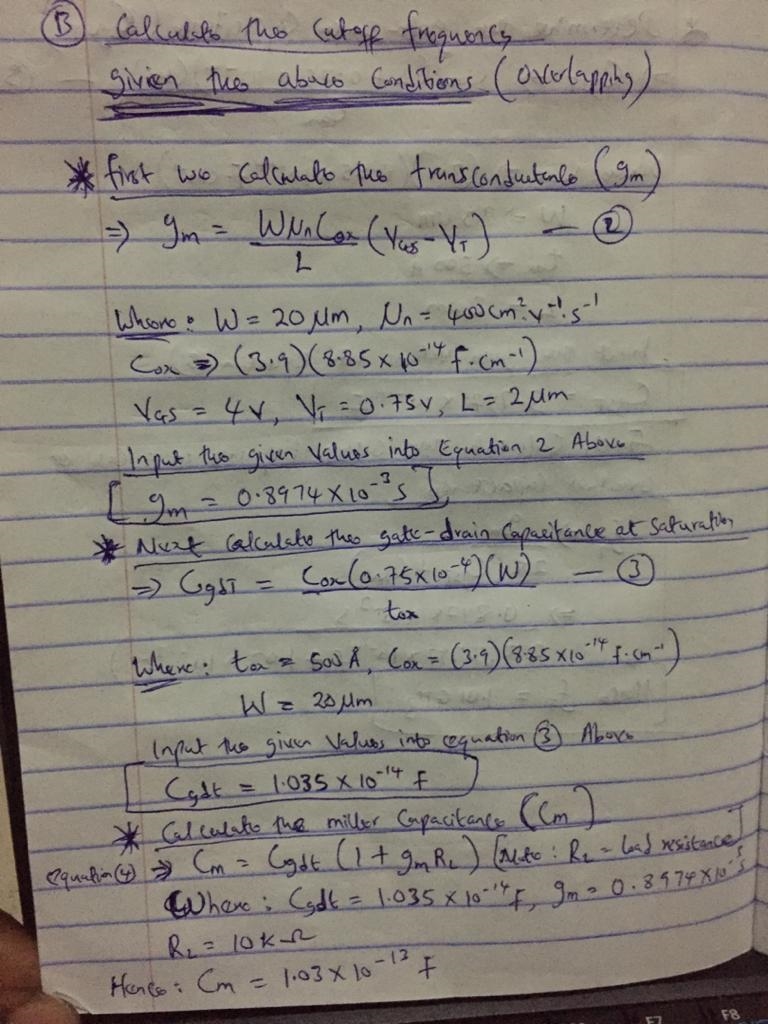 (B) Calculate the Cutoff frequency
given the above Conditions (Overlapping)
* first we Calculate the transconductance (gm)
⇒ gm = WμnCox/L (VGS - VT) — (2)
Where: W = 20 μm, μn = 400 cm².v⁻¹.s⁻¹
Cox ⇒ (3.9)(8.85 x 10⁻¹⁴ f.cm⁻¹)
VGS = 4V, VT = 0.75V, L = 2μm
Input the given values into Equation 2 Above
[gm = 0.8974 x 10⁻³ S]
* Next Calculate the gate-drain Capacitance at Saturation
⇒ CgdT = Cox(0.75x10⁻⁴)(W)/tox — (3)
Where: tox = 500 Å, Cox = (3.9)(8.85 x10⁻¹⁴ f.cm⁻¹)
W = 20 μm
Input the given values into equation (3) Above
Cgdt = 1.035 x 10⁻¹⁴ f
* Calculate the miller Capacitance (Cm)
equation (4) ⇒ Cm = Cgdt (1 + gm RL) [Note: RL = load resistance]
Where: Cgdt = 1.035 x 10⁻¹⁴ f, gm = 0.8974 x 10⁻³ S
RL = 10kΩ
Hence: Cm = 1.03 x 10⁻¹³ f
F7
F8